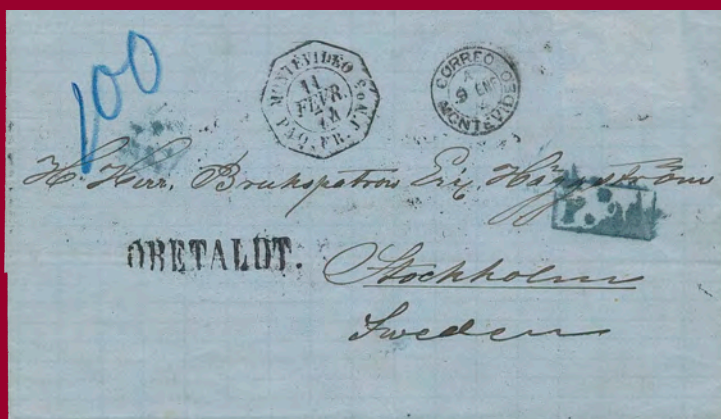 100
MONTEVIDEO
FEVR.
74
PAQ. FR.
CORREO
ENE
MONTEVIDEO
H. Herr. Brukspatron Eric. Häggström
OBETALDT.
Stockholm
Sweden